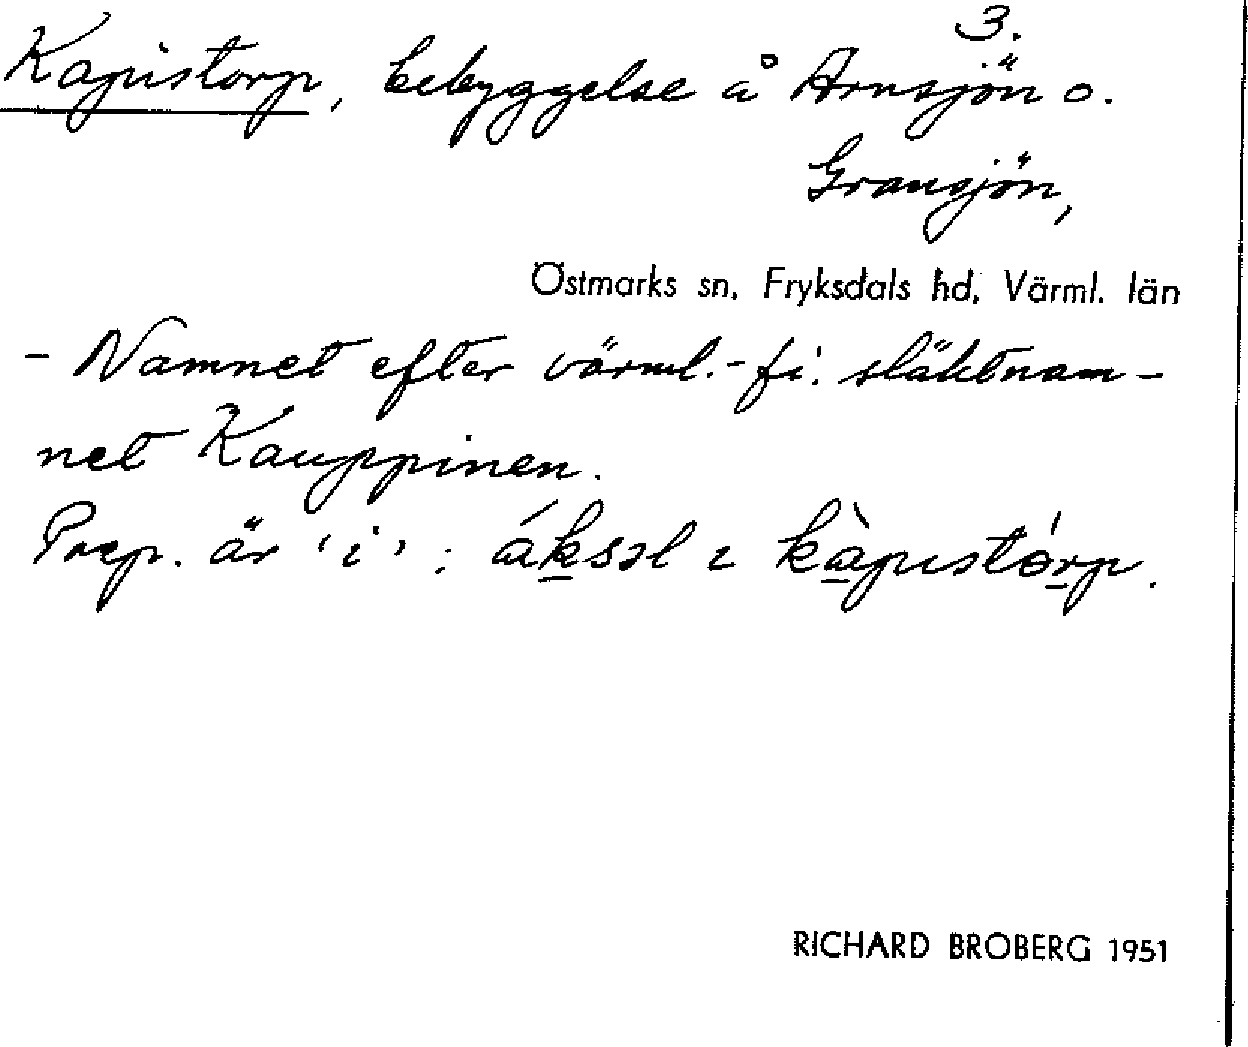 3.
Kapistorp, bebyggelse å Arnsjön o.
Gransjön,
Östmarks sn, Fryksdals hd, Värml. län
- Namnet efter värml.-fi. släktnam-
net Kauppinen.
Prep. är 'i': áksəl ɪ kàpɪstórp.
RICHARD BROBERG 1951